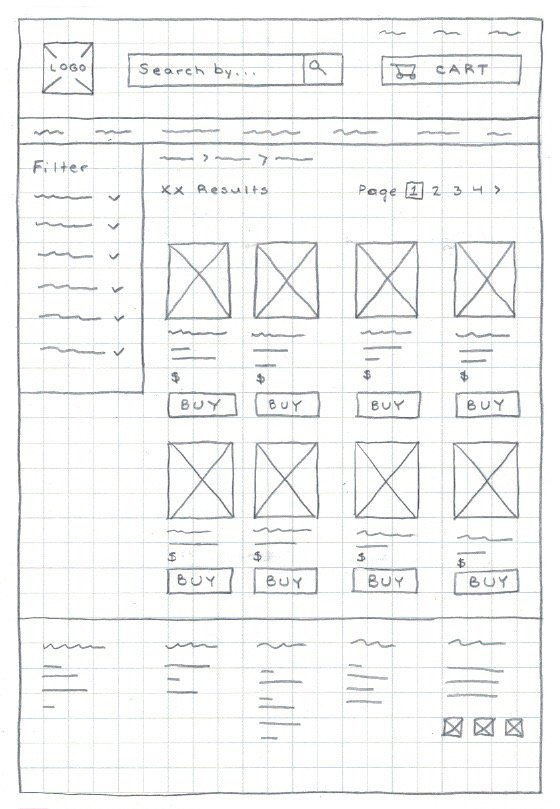 LOGO
Search by...
CART
Filter
XX Results
Page 1 2 3 4 >
$ $ $ $
BUY BUY BUY BUY
$ $ $ $
BUY BUY BUY BUY